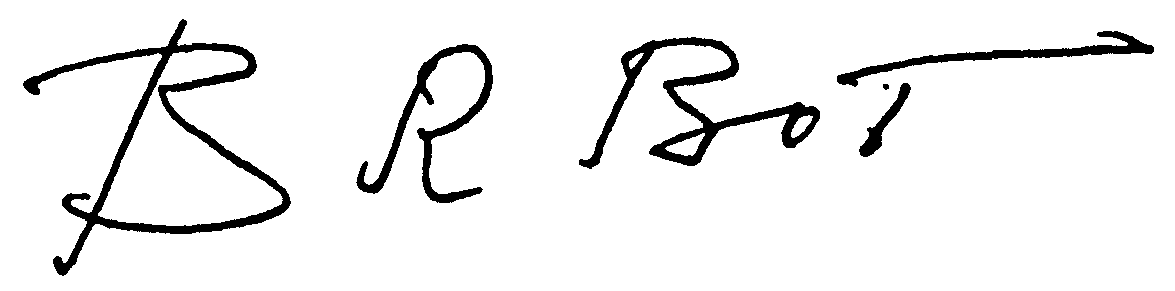 B R BOT